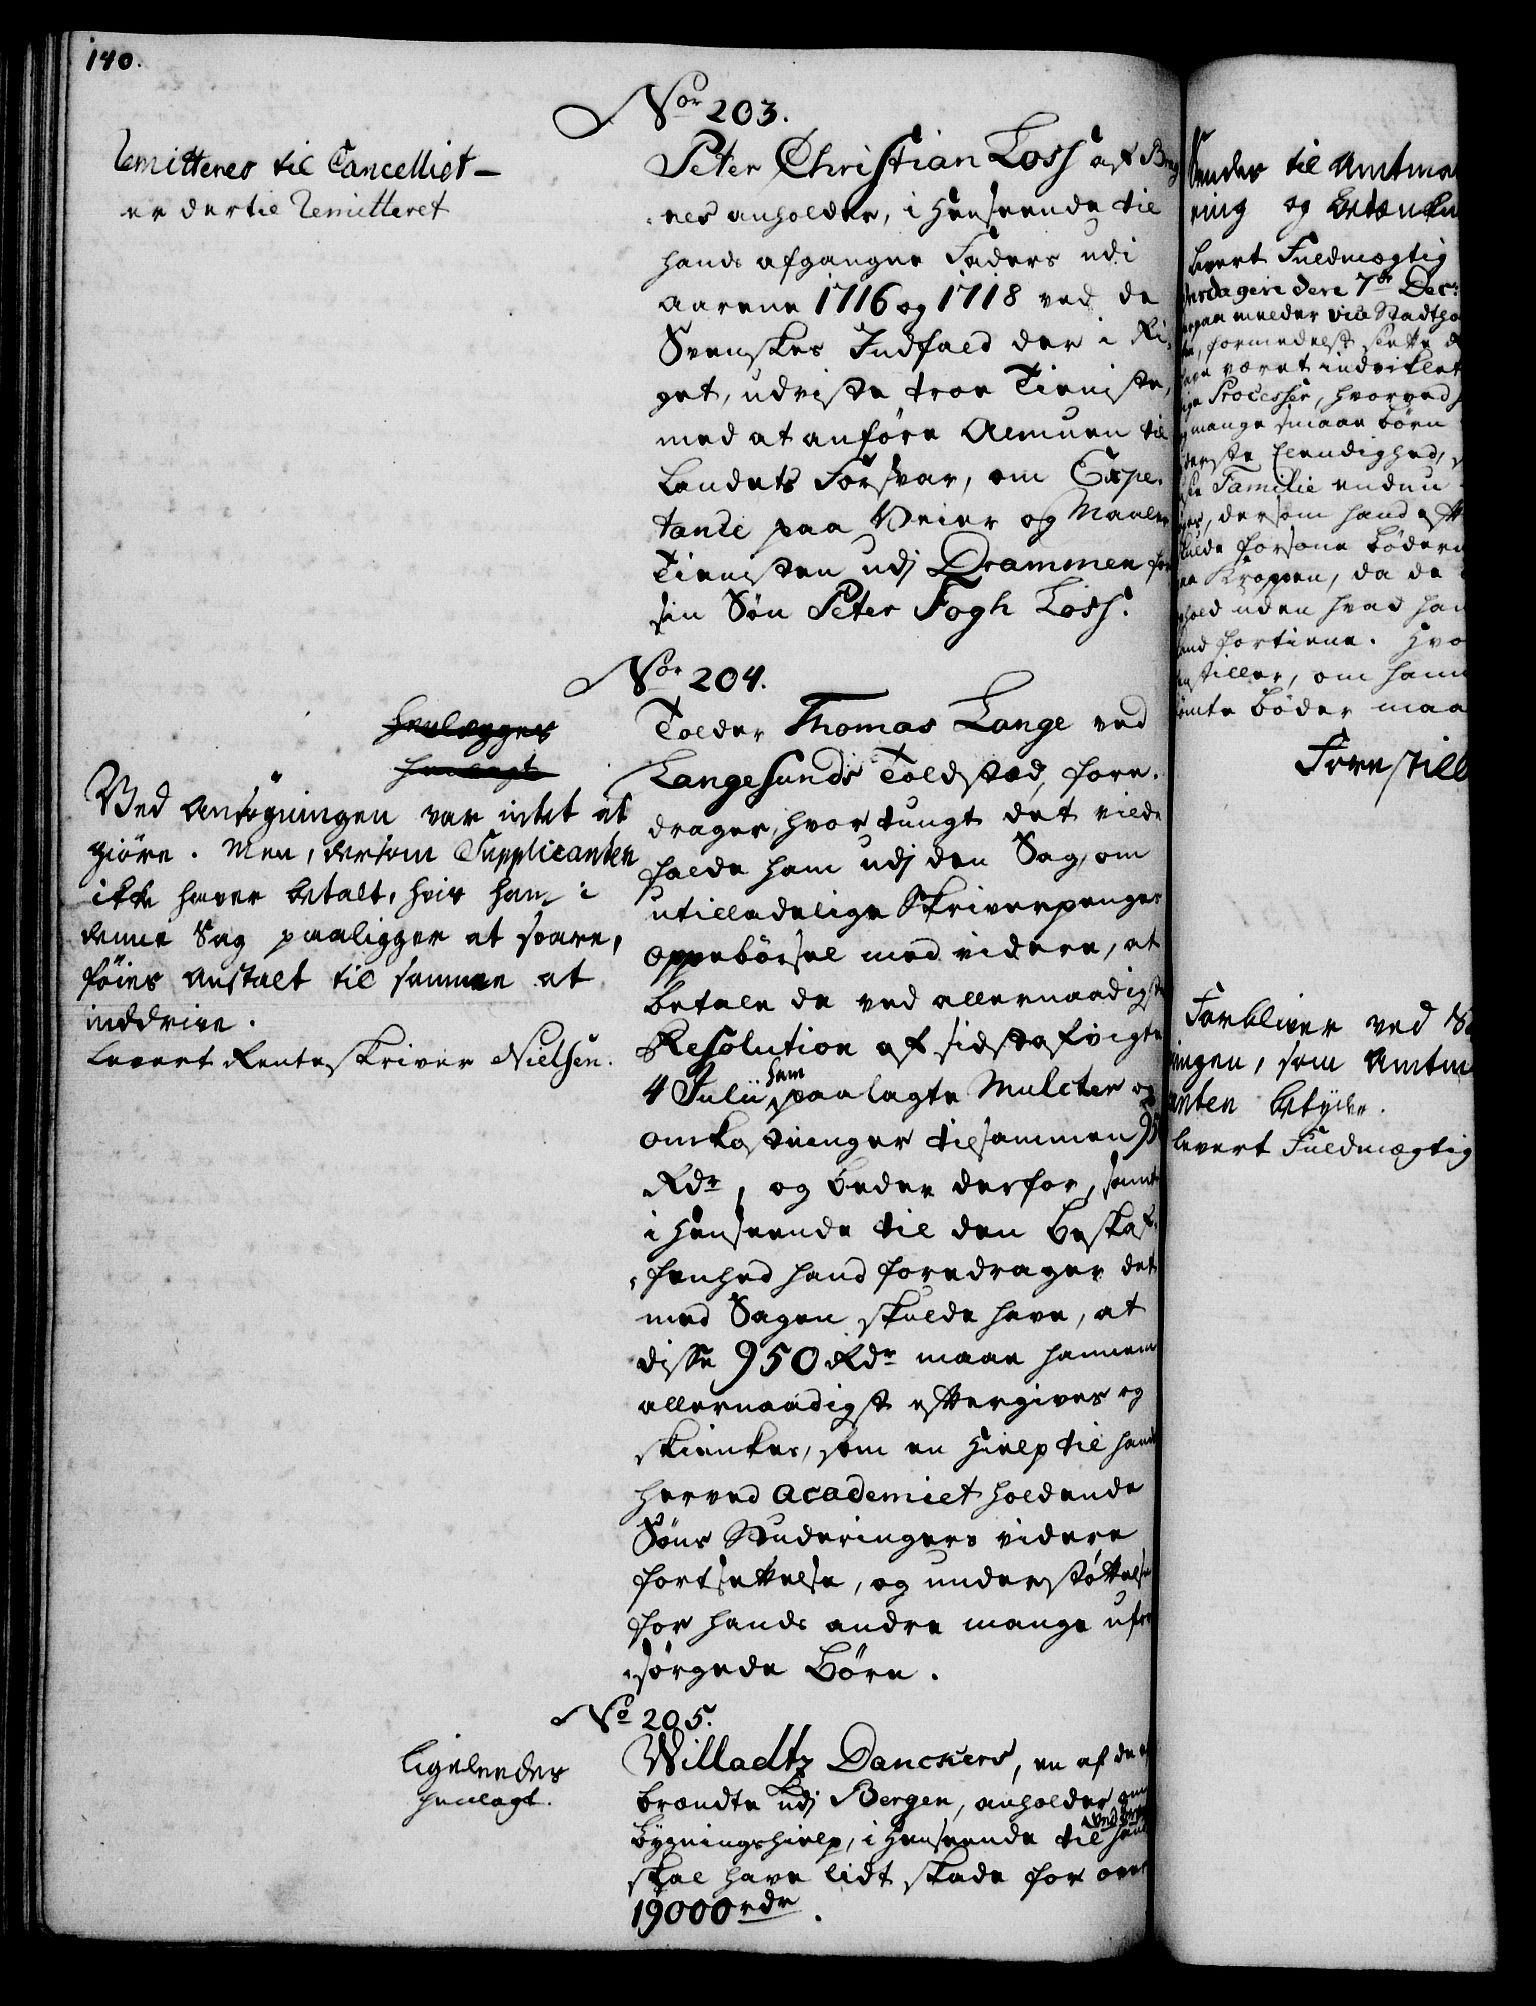 140.
Nor 203.
Remitteres til Cancelliet -
er dertil Remitteret
Peter Christian Loss af Brag
nes anholder, i Henseende til
hands afgangne Faders udi
Aarene 1716 og 1718 ved de
Svenskes Indfald der i Ri,
get, udviste troe Tieniste,
med at anföre Almuen til
Landets Forsvar, om Expe,
tance paa Veier og Maaler
Tienisten udj Drammen for
sin Sön Peter Fogh Loss.
Nor 204.
henlegges
henlagt
Ved Ansøgningen var intet at
giöre. Men, dersom Supplicanten
ikke haver betalt, hvis ham i
denne Sag paaligger at svare,
föies Anstalt til samme at
inddrive.
Levert Renteskriver Nielsen.
Tolder Thomas Lange ved
LangeSunds Toldsted, fore,
drager, hvor tungt det vilde
falde ham udj den Sag, om
utilladelige Skriverpenges
Oppebörsel med videre, at
betale de ved allernaadigste
Resolution af sidstafvigte
4 Julii ham paalagte Mulcter og
Omkostninger tilsammen 95
Rdr, og beder derfor, samt
i Henseende til den Beskaf,
fenhed hand foredrager det
med Sagen skulde have, at
disse 950 Rdr maae hannem
allernaadigst eftergives og
skienkes, som en Hielp til hands
her ved Academiet holdende
Söns Studeringers videre
fortsettelse, og understöttelse
for hands andre mange ufor
sörgede Börn.
No 205.
Ligeledes
henlagt.
Willadtz Danckers, en af de af
brændte udj Bergen, anholder om
Bygningshielp, i Henseende til hand
skal have lidt skade for over
19000 rdr.
Sendes til Amtma
ring og Betænkn
Levert Fuldmægtig
7de Decr
melder Stadtho
formedelst
være indviklet
Processer, hvorved
mange smaae börn
Elendighed,
Familie endnu
dersom hand
forsone böder
Kroppen, da de
uden hvad han
fortiene. Hvo
stiller, om ham
dömte Böder maa
Forestill
Forbliver ved
ingen, som Amtm
anten betyder.
levert Fuldmægtig